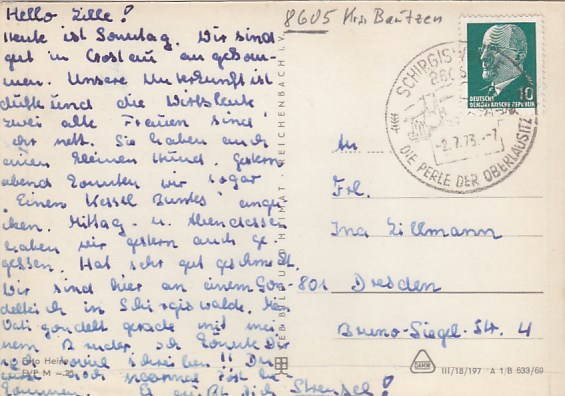 Hello Zille!
Heute ist Sonntag. Wir sind
gut in Crostau angekom-
men. Unsere Unterkunft ist
dufte und die Wirtsleute
zwei alte Frauen sind
sehr nett. Sie haben auch
einen kleinen Hund. Gestern
abend konnten wir sogar
"Einen Kessel Buntes" anguk-
ken. Mittag- u. Abendessen
haben wir gestern auch ge-
gessen. Hat sehr gut geschmeckt.
Wir sind hier an einem Gon-
delteich in Schirgiswalde.
Vati gondelt gerade mit mei-
nem Bruder. Ich könnte
noch soviel schreiben!!
kommen. Es grüßt dich Strensel!
8605 Krs Bautzen
SCHIRGISWALDE
8605
-2.7.73.-7
DIE PERLE DER OBERLAUSITZ
10
DEUTSCHE
DEMOKRATISCHE REPUBLIK
An
Frl.
Ina Zillmann
801 Dresden
Bruno-Siegel-Str. 4
VEB BILD UND HEIMAT · REICHENBACH I. V.
III/18/197 A 1/B 533/69